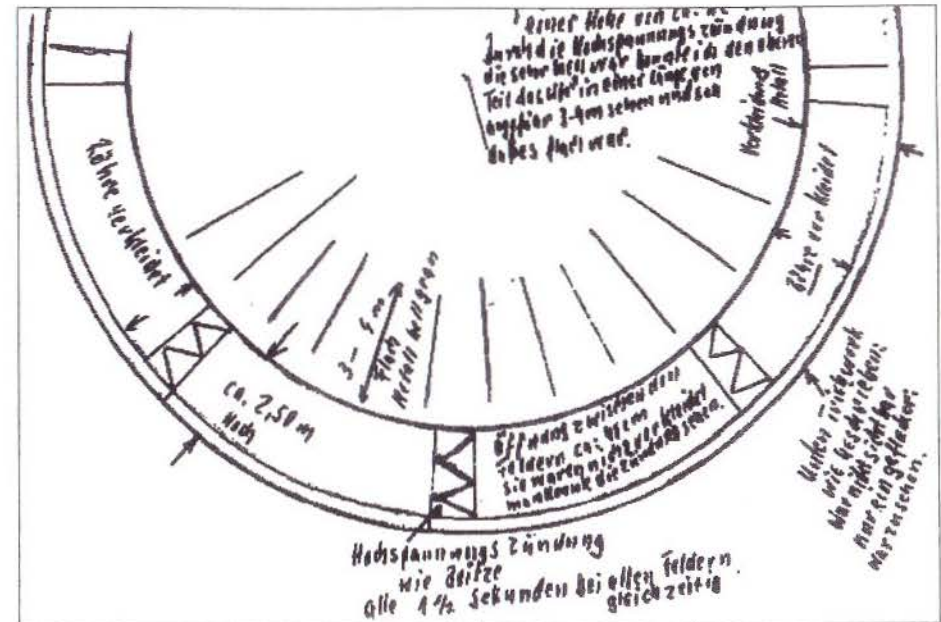 einer Höhe von ca.
Durch die Hochspannungszündung
die sehr hell war konnte ich den oberen
Teil des Ufo in einer Länge von
ungefähr 3-4m sehen und sah
daß es flach war.
Verkleidung
Metall
Röhre verkleidet
Röhre verkleidet
3 - 4 m
Flach
Metall hellgrau
ca. 2,50 m
Hoch
Öffnung zwischen den
Feldern ca.
sie waren nicht verkleidet
man konnte die Zündung sehen.
Unten - ?
wie beschrieben:
war nicht sichtbar
nur ein
war zu sehen.
Hochspannungszündung
wie Blitze
alle 1 1/2 Sekunden bei allen Feldern
gleichzeitig